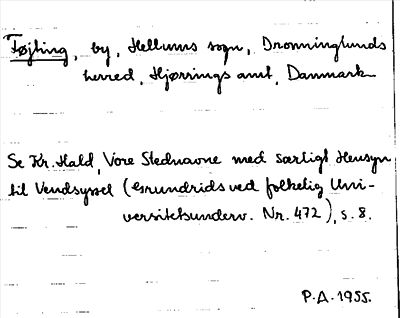 Føjting, by, Hellums sogn, Dronninglunds
herred, Hjørrings amt, Danmark
Se Kr. Hald, Vore Stednavne med særligt Hensyn
til Vendsyssel (Grundrids ved folkelig Uni-
versitetsunderv. Nr. 472), s. 8.
P.A. 1955.